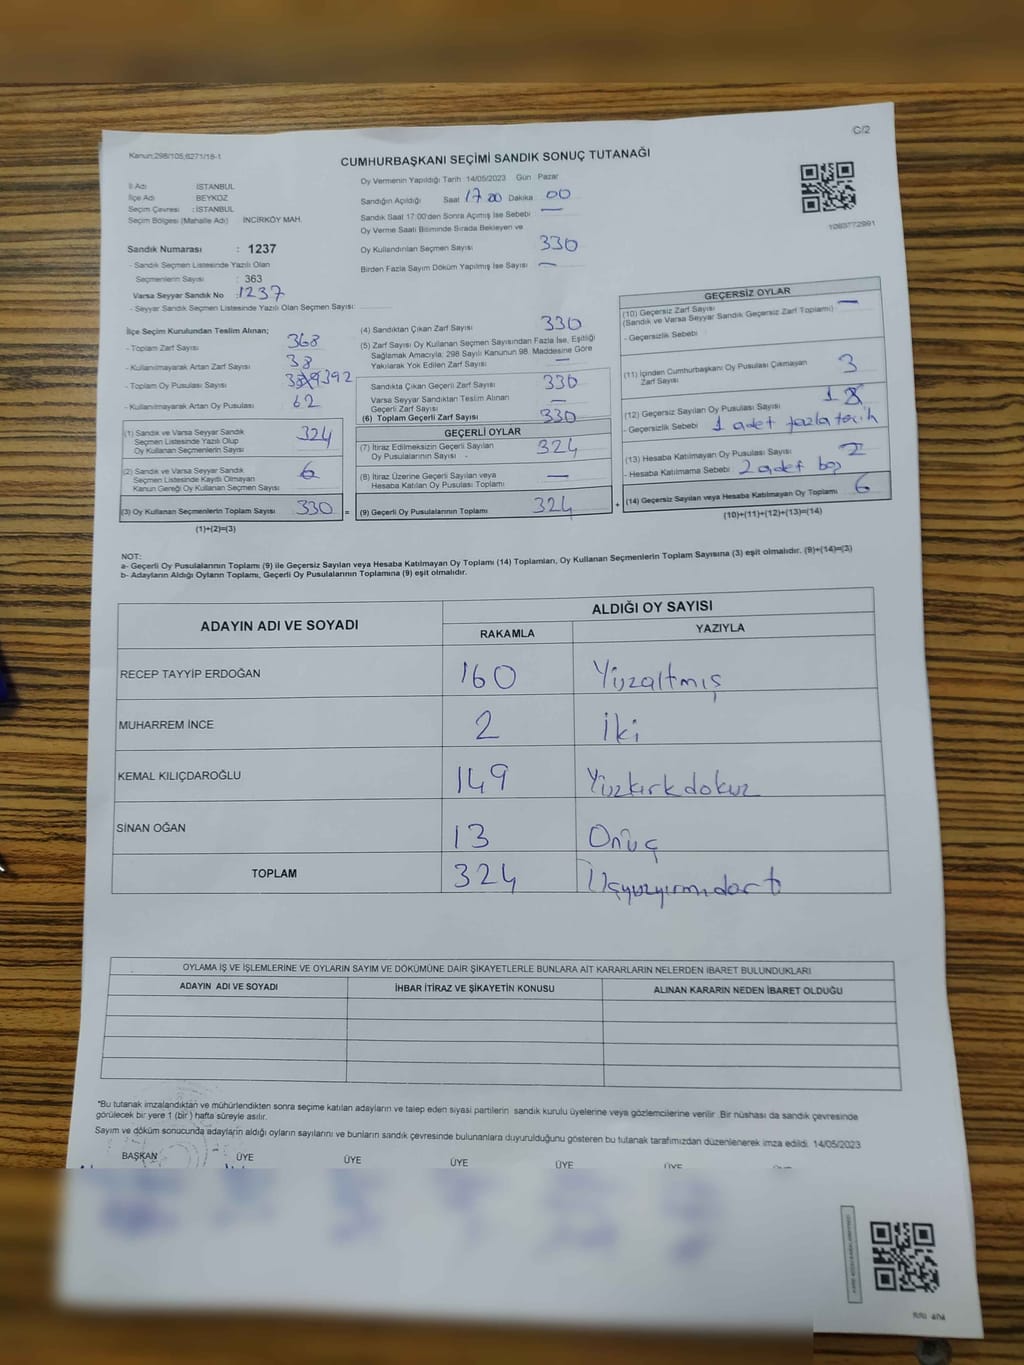 C/2
Kanun:298/105,6271/18-1
CUMHURBAŞKANI SEÇİMİ SANDIK SONUÇ TUTANAĞI
İl Adı İSTANBUL
İlçe Adı BEYKOZ
Seçim Çevresi : İSTANBUL
Seçim Bölgesi (Mahalle Adı) İNCİRKÖY MAH.
Sandık Numarası : 1237
- Sandık Seçmen Listesinde Yazılı Olan
Seçmenlerin Sayısı : 363
Varsa Seyyar Sandık No : 1237
- Seyyar Sandık Seçmen Listesinde Yazılı Olan Seçmen Sayısı:
Oy Vermenin Yapıldığı Tarih 14/05/2023 Gün Pazar
Sandığın Açıldığı Saat 17 00 Dakika 00
Sandık Saat 17:00'den Sonra Açımış İse Sebebi —
Oy Verme Saati Bitiminde Sırada Bekleyen ve
Oy Kullandırılan Seçmen Sayısı 330
Birden Fazla Sayım Döküm Yapılmış İse Sayısı —
1083772991
İlçe Seçim Kurulundan Teslim Alınan;
- Toplam Zarf Sayısı 368
- Kullanılmayarak Artan Zarf Sayısı 38
- Toplam Oy Pusulası Sayısı 392
- Kullanılmayarak Artan Oy Pusulası 62
(1) Sandık ve Varsa Seyyar Sandık
Seçmen Listesinde Yazılı Olup
Oy Kullanan Seçmenlerin Sayısı 324
(2) Sandık ve Varsa Seyyar Sandık
Seçmen Listesinde Kayıtlı Olmayan
Kanun Gereği Oy Kullanan Seçmen Sayısı 6
(3) Oy Kullanan Seçmenlerin Toplam Sayısı 330 =
(1)+(2)=(3)
(4) Sandıktan Çıkan Zarf Sayısı 330
(5) Zarf Sayısı Oy Kullanan Seçmen Sayısından Fazla İse, Eşitliği
Sağlamak Amacıyla; 298 Sayılı Kanunun 98. Maddesine Göre
Yakılarak Yok Edilen Zarf Sayısı —
Sandıkta Çıkan Geçerli Zarf Sayısı 330
Varsa Seyyar Sandıktan Teslim Alınan
Geçerli Zarf Sayısı —
(6) Toplam Geçerli Zarf Sayısı 330
GEÇERLİ OYLAR
(7) İtiraz Edilmeksizin Geçerli Sayılan
Oy Pusulalarının Sayısı 324
(8) İtiraz Üzerine Geçerli Sayılan veya
Hesaba Katılan Oy Pusulası Toplamı —
(9) Geçerli Oy Pusulalarının Toplamı 324 +
GEÇERSİZ OYLAR
(10) Geçersiz Zarf Sayısı —
(Sandık ve Varsa Seyyar Sandık Geçersiz Zarf Toplamı)
- Geçersizlik Sebebi
(11) İçinden Cumhurbaşkanı Oy Pusulası Çıkmayan
Zarf Sayısı 3
(12) Geçersiz Sayılan Oy Pusulası Sayısı 1
- Geçersizlik Sebebi 1 adet fazla tercih
(13) Hesaba Katılmayan Oy Pusulası Sayısı 2
- Hesaba Katılmama Sebebi 2 adet boş
(14) Geçersiz Sayılan veya Hesaba Katılmayan Oy Toplamı 6
(10)+(11)+(12)+(13)=(14)
NOT:
a- Geçerli Oy Pusulalarının Toplamı (9) ile Geçersiz Sayılan veya Hesaba Katılmayan Oy Toplamı (14) Toplamları, Oy Kullanan Seçmenlerin Toplam Sayısına (3) eşit olmalıdır. (9)+(14)=(3)
b- Adayların Aldığı Oyların Toplamı, Geçerli Oy Pusulalarının Toplamına (9) eşit olmalıdır.
ADAYIN ADI VE SOYADI ALDIĞI OY SAYISI
RAKAMLA YAZIYLA
RECEP TAYYİP ERDOĞAN 160 Yüzaltmış
MUHARREM İNCE 2 İki
KEMAL KILIÇDAROĞLU 149 Yüzkırkdokuz
SİNAN OĞAN 13 Onüç
TOPLAM 324 Üçyüzyirmidört
OYLAMA İŞ VE İŞLEMLERİNE VE OYLARIN SAYIM VE DÖKÜMÜNE DAİR ŞİKAYETLERLE BUNLARA AİT KARARLARIN NELERDEN İBARET BULUNDUKLARI
ADAYIN ADI VE SOYADI İHBAR İTİRAZ VE ŞİKAYETİN KONUSU ALINAN KARARIN NEDEN İBARET OLDUĞU
"Bu tutanak imzalandıktan ve mühürlendikten sonra seçime katılan adayların ve talep eden siyasi partilerin sandık kurulu üyelerine veya gözlemcilerine verilir. Bir nüshası da sandık çevresinde
görülecek bir yere 1 (bir) hafta süreyle asılır.
Sayım ve döküm sonucunda adayların aldığı oyların sayılarını ve bunların sandık çevresinde bulunanlara duyurulduğunu gösteren bu tutanak tarafımızdan düzenlenerek imza edildi. 14/05/2023
BAŞKAN ÜYE ÜYE ÜYE ÜYE ÜYE